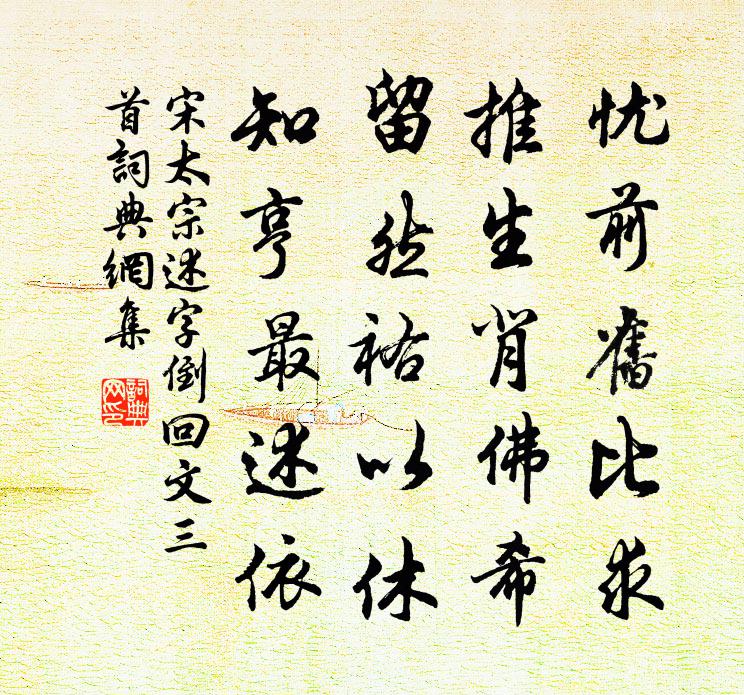 忧前旧比求
推生肖佛希
留然裕以休
知亨最述依
宋太宗述字倒回文三
首詞典網集
詞典
网印